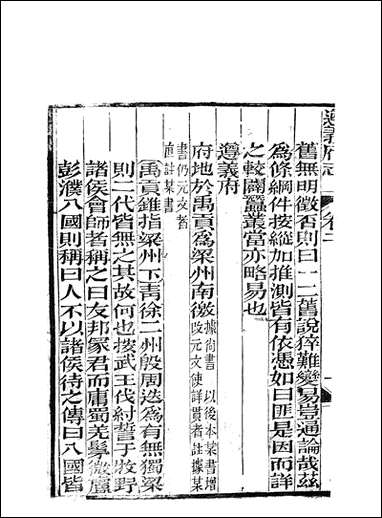 遵義府志 卷二 一
舊無明徵否則曰一二舊說猝難變易豈通論哉茲
為條綱件按縱加推測皆有依憑如曰匪是因而詳
之較闢蠶叢當亦略易也
遵義府
府地於禹貢為梁州南徼據尚書 以後本某書增改元文使詳貫者註據某
書仍元文者直註某書
禹貢雖指梁州下青徐二州殷周迭為有無獨梁
則二代皆無之其故何也按武王伐紂誓于牧野
諸侯會師者稱之曰友邦冢君而庸蜀羌髳微盧
彭濮八國則稱曰人不以諸侯待之傳曰八國皆